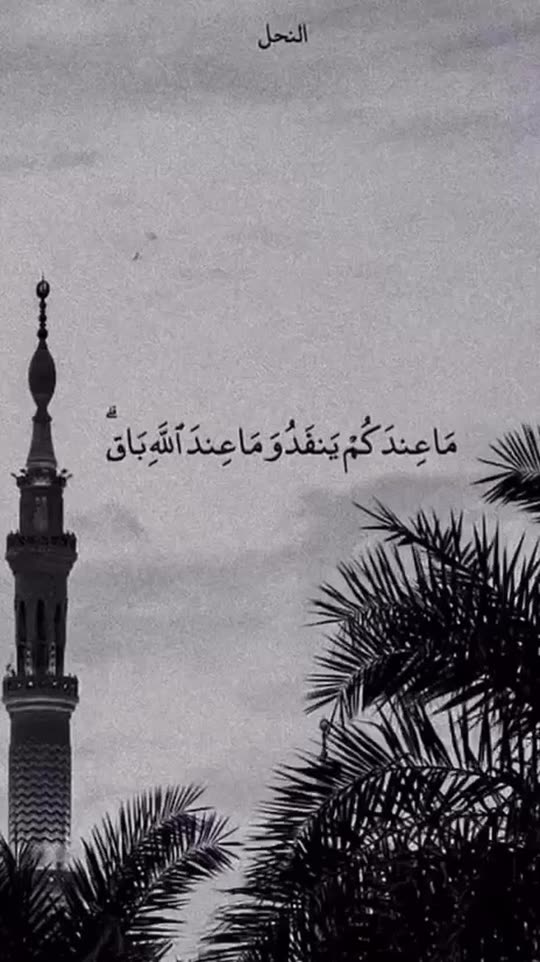 النحل
مَا عِندَكُمْ يَنفَدُ وَمَا عِندَ ٱللَّهِ بَاقٍۗ